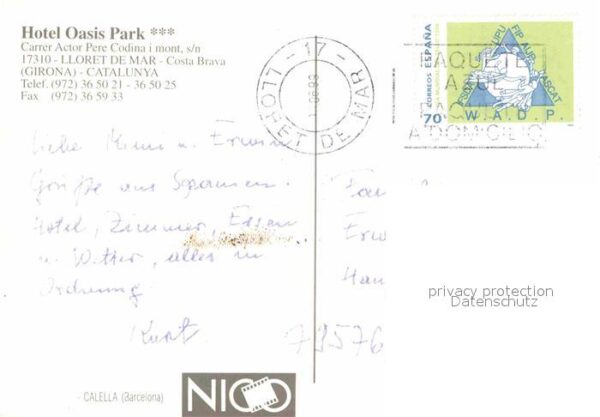 Hotel Oasis Park ***
Carrer Actor Pere Codina i mont, s/n
17310 - LLORET DE MAR - Costa Brava
(GIRONA) - CATALUNYA
Telef. (972) 36 50 21 - 36 50 25
Fax (972) 36 59 33
- 17 -
LLORET DE MAR
CORREOS ESPAÑA
70
W.A.D.P.
PAQUE
AZUL
A DOMICILIO
Liebe Mimi u. Erwin
Grüße aus Spanien.
Hotel, Zimmer, Essen
u. Wetter, alles in
Ordnung.
Kurt
Fam
Erw
Hau
79576
privacy protection
Datenschutz
- CALELLA (Barcelona)
NICO